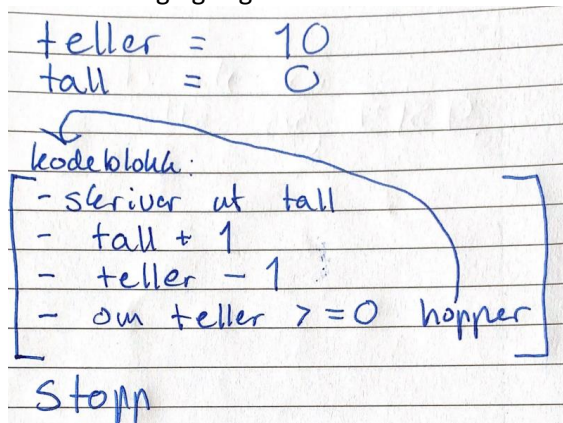 teller = 10
tall = 0
kodeblokk:
- skriver ut tall
- tall + 1
- teller - 1
- om teller >= 0 hopper
Stopp